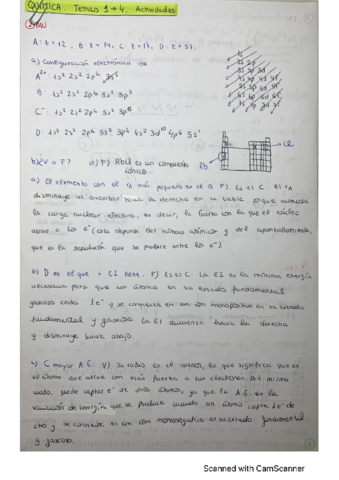 QUÍMICA. Temas 1 → 4. Actividades
A: z = 12, B: z = 14, C: z = 17, D: z = 37.
a) Configuración electrónica de
A²⁺: 1s² 2s² 2p⁶ 3s²
B: 1s² 2s² 2p⁶ 3s² 3p²
C⁻: 1s² 2s² 2p⁶ 3s² 3p⁶
D: 1s² 2s² 2p⁶ 3s² 3p⁶ 4s² 3d¹⁰ 4p⁶ 5s¹
Rb
Cl
b) ¿V o F? d) F) RbCl es un compuesto
iónico.
a) El elemento con el rA más pequeño es el B. F) Es el C. El rA
disminuye al avanzar hacia la derecha en la tabla porque aumenta
la carga nuclear efectiva, es decir, la fuerza con la que el núcleo
atrae a los e⁻ (esta depende del número atómico y del apantallamiento,
que es la repulsión que se produce entre los e⁻).
b) D es el que + EI tiene. F) Es el C. La EI es la mínima energía
necesaria para que un átomo en su estado fundamental
gaseoso ceda 1e⁻ y se convierta en un ión monopositivo en su estado
fundamental y gaseoso. La EI aumenta hacia la derecha
y disminuye hacia abajo.
c) C mayor A.E. V) Su radio es el menor, lo que significa que es
el átomo que atrae con más fuerza a sus electrones. Del mismo
modo, puede captar e⁻ de otros átomos, ya que la A.E. es la
variación de energía que se produce cuando un átomo capta 1e⁻ de
otro y se convierte en un ión mononegativo en su estado fundamental
y gaseoso.
Scanned with CamScanner